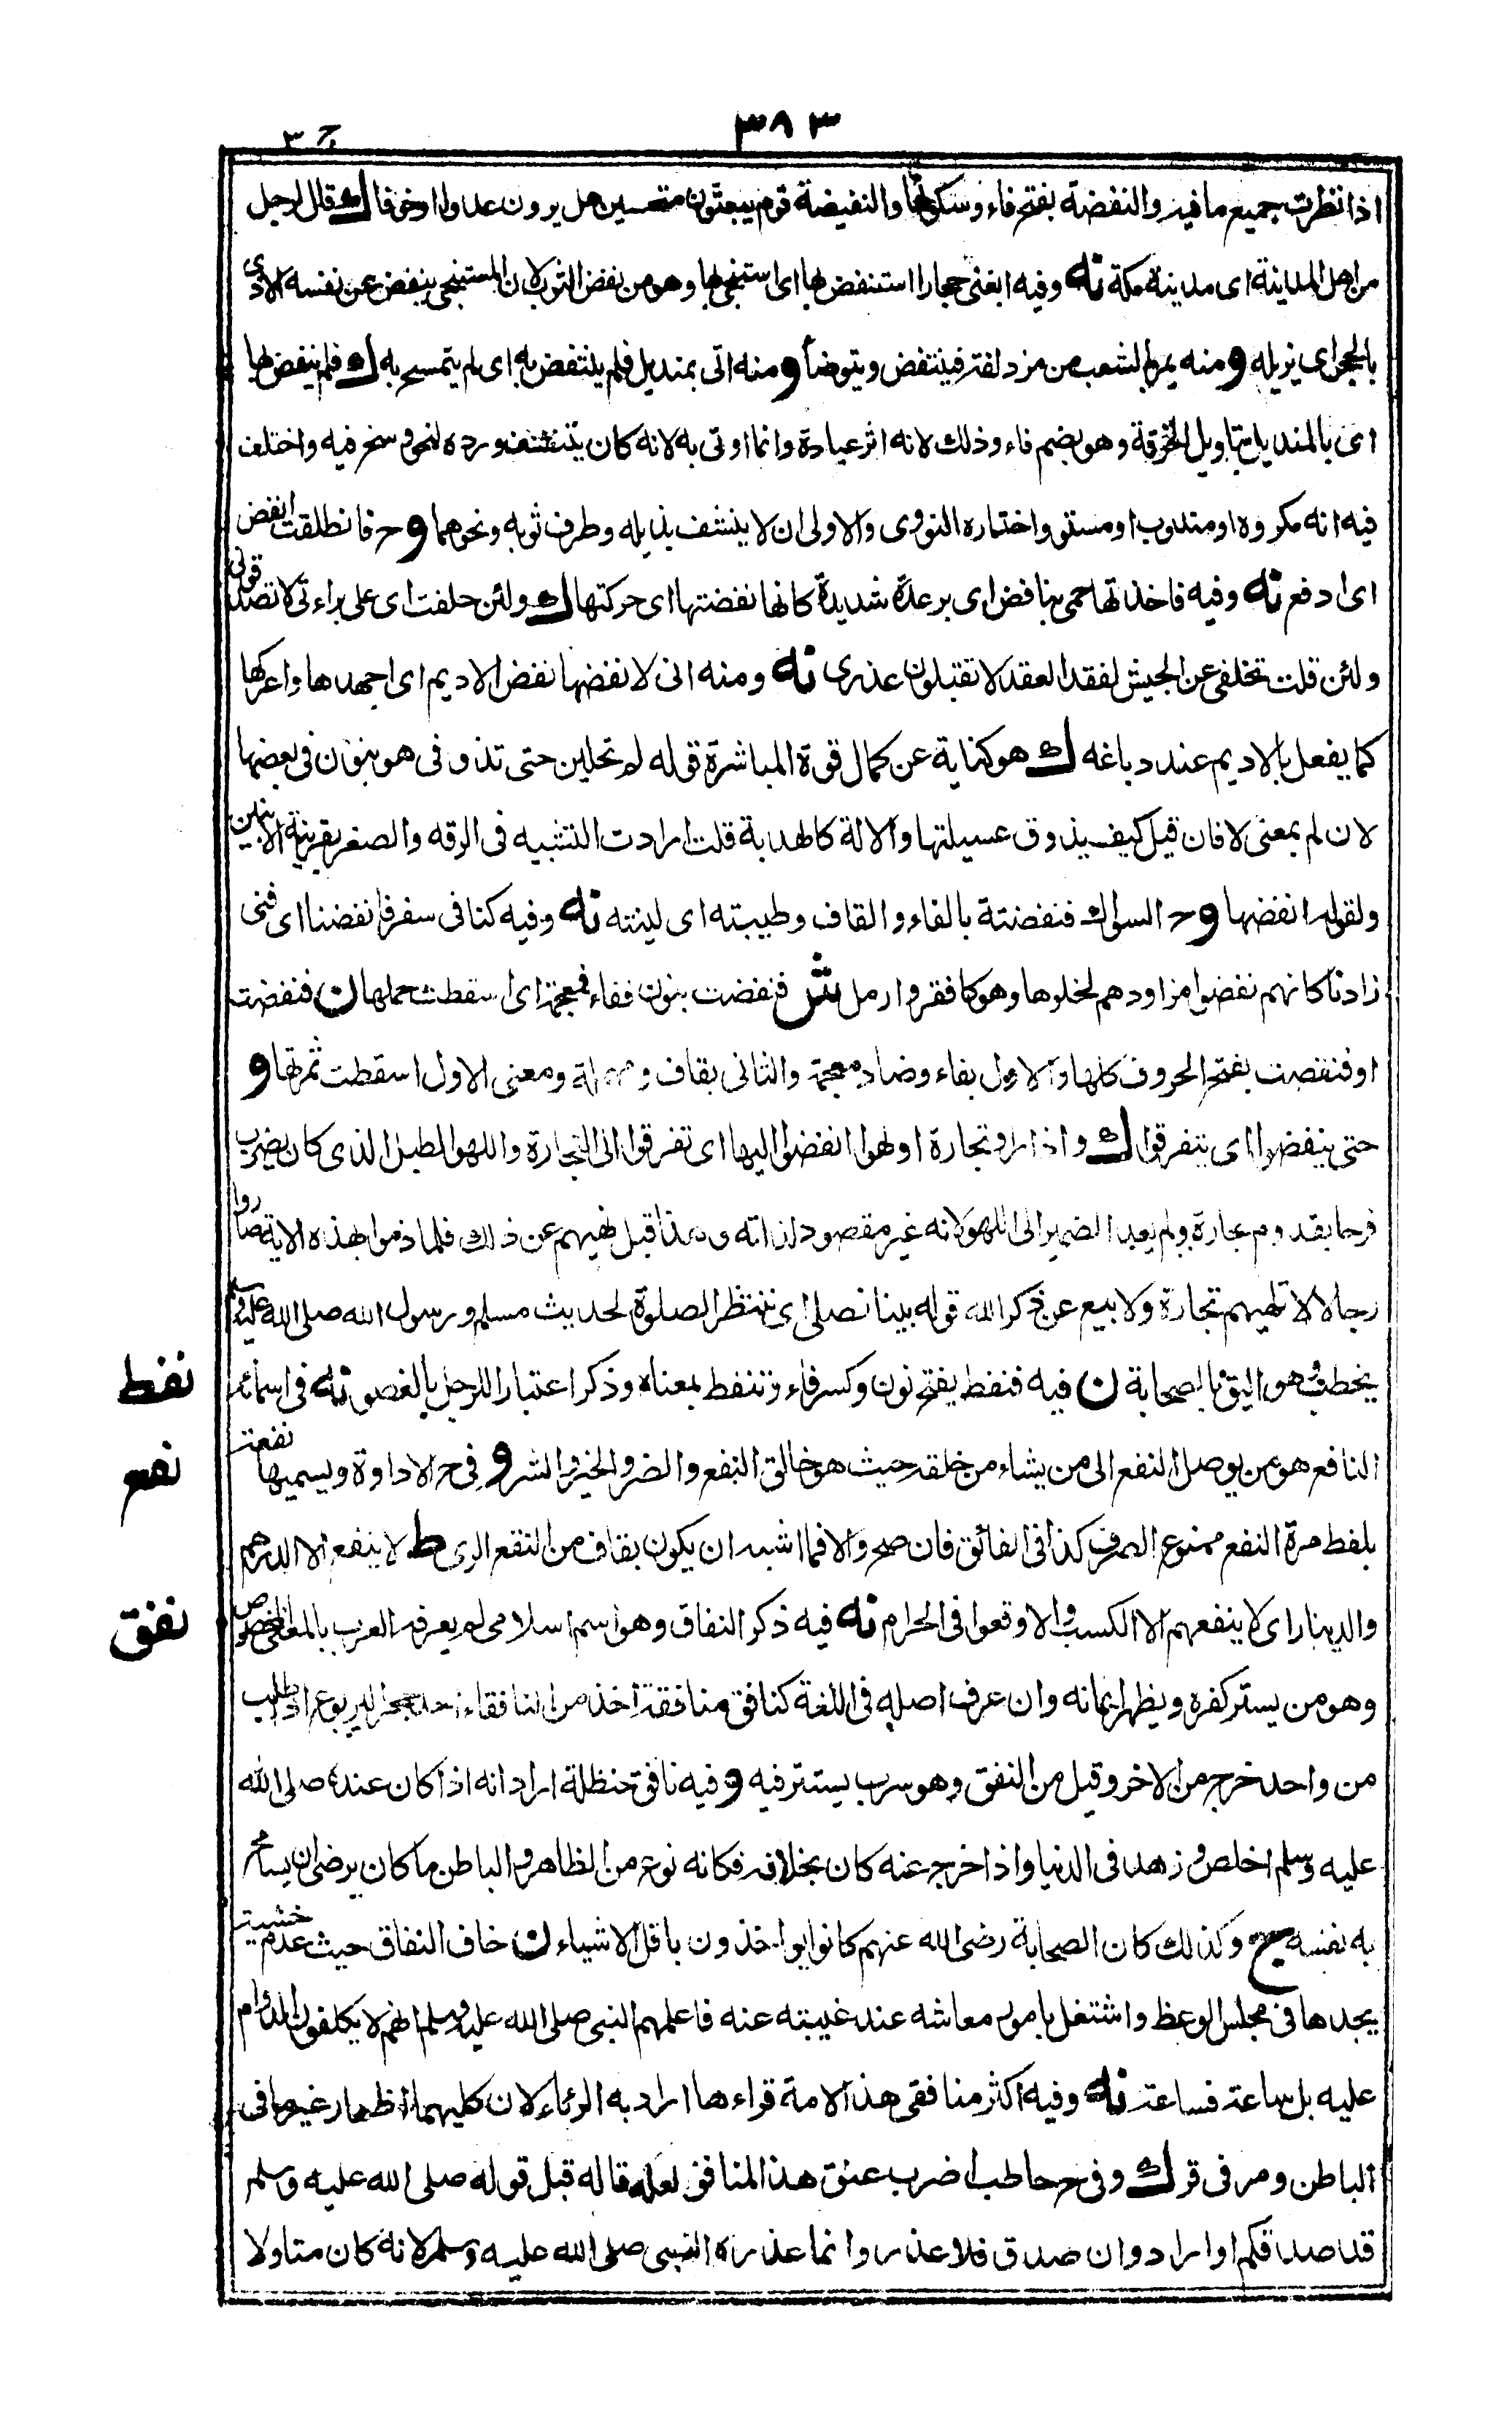 ٣٨٣
ج ٣
اذا نظرت جميع ما فيه والنفضة بفتح فاء وسكونها والنفيضة قوم يبعثون متجسسين هل يرون عدوا او خوفا ك قال لرجل
من اهل المدينة اى مدينة مكة نه وفيه ابغنى حجارا استنفض بها اى استنجى بها وهو من نفض الثوب لان المستنجى ينفض عن نفسه الاذى
بالحجر اى يزيله و منه يمر بالشعب من مزدلفة فينتفض ويتوضأ و منه اتى بمنديل فلم ينتفض به اى لم يتمسح به ك فلم ينفض بها
اى بالمنديل بتاويل الخرقة وهو بضم فاء وذلك لانه اثر عبادة وانما اوتى به لانه كان يتنشف ورده لنحو وسخ فيه واختلف
فيه انه مكروه او مندوب او مستو واختاره النووى والاولى ان لا ينشف بذيله وطرف ثوبه ونحوهما و ح فانطلقت انفض
اى ادفع نه وفيه فاخذتها حمى بنافض اى برعدة شديدة كانها نفضتها اى حركتها ك ولئن حلفت اى على براءتى لا تصدقونى
ولئن قلت تخلفى عن الجيش لفقد العقد لا تقبلون عذرى نه ومنه انى لانفضها نفض الاديم اى اجهدها واعركها
كما يفعل بالاديم عند دباغه ك هو كناية عن كمال قوة المباشرة قوله لم تحلين حتى تذوقى هو بنون فى بعضها
لان لم بمعنى لا فان قيل كيف يذوق عسيلتها والالة كالهدبة قلت ارادت التشبيه فى الرقه والصغر بقرينة الابنين
ولقوله انفضها و ح السواك فنفضته بالفاء والقاف وطيبته اى لينته نه وفيه كنا فى سفر فانفضنا اى فنى
زادنا كانهم نفضوا مزاودهم لخلوها وهو كافقر وارمل ش فنفضت بنون ففاء فمعجمة اى اسقطت حملها ن فنفضت
او فنقصت بفتح الحروف كلها والاول بفاء وضاد معجمة والثانى بقاف ومهملة ومعنى الاول اسقطت ثمرتها و
حتى ينفضوا اى يتفرقوا ك واذا راو تجارة او لهوا انفضوا اليها اى تفرقوا الى التجارة واللهو الطبل الذى كان يضرب
فرحا بقدوم تجارة ولم يعد الضمير الى اللهو لانه غير مقصود لذاته وهذا قبل نهيهم عن ذلك فلما ذموا بهذه الاية صاروا
رجالا لا تلهيهم تجارة ولا بيع عن ذكر الله قوله بينا نصلى اى ننتظر الصلوة لحديث مسلم ورسول الله صلى الله عليه وسلم
يخطب وهو اليق بالصحابة ن فيه فنفط بفتح نون وكسر فاء وتنفط بمعناه وذكر اعتبارا للرجل بالعضو نه فى اسمائه
النافع هو من يوصل النفع الى من يشاء من خلقه حيث هو خالق النفع والضر والخير والشر و فى ح الاداوة ويسميها نفعة
بلفظ مرة النفع ممنوع الصرف كذا فى الفائق فان صح والا فما اشبه ان يكون بقاف من النقع الرى ط لا ينفع الا الدرهم
والدينار اى لا ينفعهم الا الكسب والا وقعوا فى الحرام نه فيه ذكر النفاق وهو اسم اسلامى لم يعرفه العرب بالمعنى المخصوص
وهو من يستر كفره ويظهر ايمانه وان عرف اصله فى اللغة كنافق منافقة اخذ من النافقاء احد جحر اليربوع اذا طلب
من واحد خرج من الاخر وقيل من النفق وهو سرب يستتر فيه و فيه نافق حنظلة اراد انه اذا كان عنده صلى الله
عليه وسلم اخلص وزهد فى الدنيا واذا خرج عنه كان بخلافه فكانه نوع من الظاهر والباطن ما كان يرضى ان يسامح
به نفسه ج وكذلك كان الصحابة رضى الله عنهم كانوا يواخذون باقل الاشياء ن خاف النفاق حيث عدم خشية
يجدها فى مجلس الوعظ واشتغل بامور معاشه عند غيبته عنه فاعلمهم النبى صلى الله عليه وسلم انهم لا يكلفون الدوام
عليه بل ساعة فساعة نه وفيه اكثر منافقى هذه الامة قراءها اراد به الرياء لان كليهما اظهار غير ما فى
الباطن ومر فى قر ك وفى ح حاطب اضرب عنق هذا المنافق لعله قاله قبل قوله صلى الله عليه وسلم
قد صدقكم او اراد وان صدق فلا عذر وانما عذره النبى صلى الله عليه وسلم لانه كان متاولا
نفط
نفع
نفق